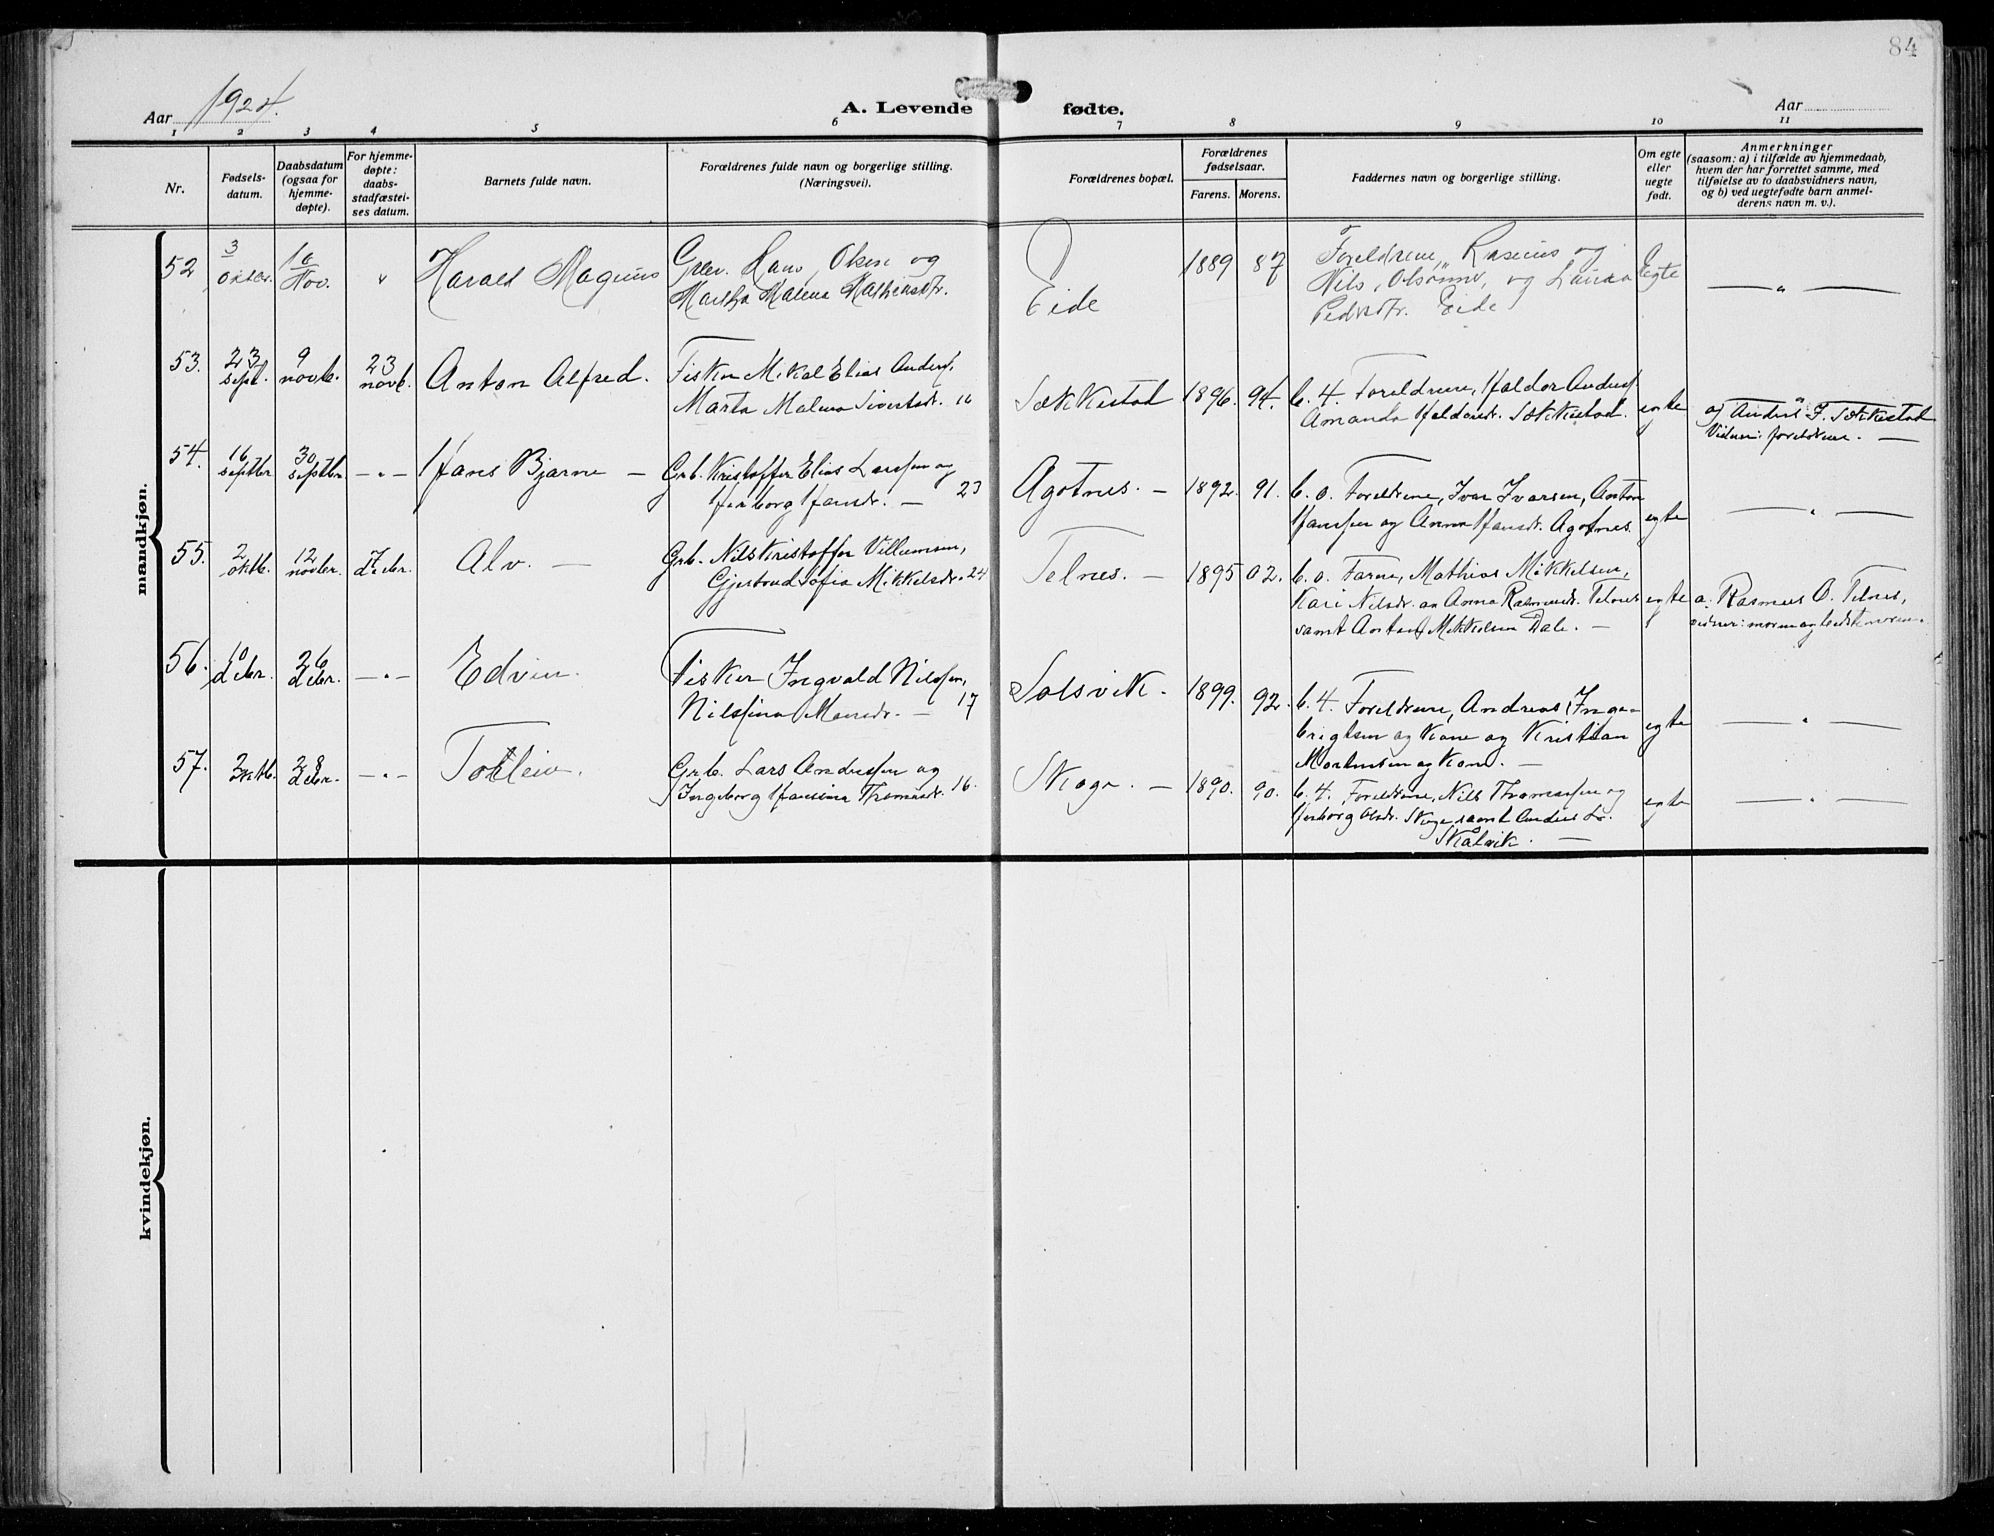 84
Aar 1924.
A. Levende fødte.
Aar
1 2 3 4 5 6 7 8 9 10 11
Nr.
Fødsels-
datum.
Daabsdatum
(ogsaa for
hjemme-
døpte).
For hjemme-
døpte:
daabs-
stadfæstel-
ses datum.
Barnets fulde navn.
Forældrenes fulde navn og borgerlige stilling.
(Næringsvei).
Forældrenes bopæl.
Forældrenes
fødselsaar.
Farens. Morens.
Faddernes navn og borgerlige stilling.
Om egte
eller
uegte
født.
Anmerkninger
(saasom: a) i tilfælde av hjemmedaab,
hvem der har forrettet samme, med
tilføielse av to daabsvidners navn,
og b) ved uegtefødte barn anmel-
derens navn m. v.).
mandkjøn.
52
3
10
Nov.
Harald Magnus
Hans Olsen og
Martha Malena
Eide
1889 87
Foreldrene, Rasmus og
Nils og Laura
Eide
Egte
53.
23
sept.
9
novb.
23
novb.
Anton Alfred.
Fisker Mikal Elias Anders.
Marta Malena Sivertsdr. 16
Sækkestad
1896. 94.
b. 4. Foreldrene, Haldor Anders.
Amanda Haldorsdr. Sækkestad.
egte
a) Anders J. Sækkestad
Vidner: foreldrene. —
54.
16
septbr
30
septbr.
— " —
Hans Bjarne —
Grb. Kristoffer Elias Larssen og
Herborg Hansdr. — 23
Agotnes. —
1892. 91.
b. o. Foreldrene, Ivar Ivarsen, Anton
Hanssen og Anna Hansdr. Agotnes.
egte
— " —
55.
2
oktb.
12
novbr.
7
debr.
Alv. —
Grb. Nils Kristoffer Villumsen,
Gjertrud Sofia Mikkelsdr. 24
Telnes. —
1895 02.
b. o. Farne, Mathias Mikkelsen,
Kari Nilsdr. og Anna Rasmusdr. Telnes
samt Anton Mikkelsen Dale. —
egte
a. Rasmus O. Telnes,
vidner: moren og bedstemoren.
56.
10
debr.
26
debr.
— " —
Edvin.
Fisker Ingvald Nilssen,
Nilsina Monsdr. — 17
Solsvik.
1899. 92.
b. 4. Foreldrene, Andreas Inge-
brigtsen og Kone og Kristian
Mortensen og Kone. —
egte
— " —
57.
2
oktb.
28
debr.
— " —
Tolleiv.
Grb. Lars Anderssen og
Ingeborg Hansina Thomasdr. 16.
Skoge. —
1890. 90.
b. 4. Foreldrene, Nils Thomassen og
Herborg Olsdr. Skoge samt Anders L.
Skålvik. —
egte
— " —
kvindekjøn.